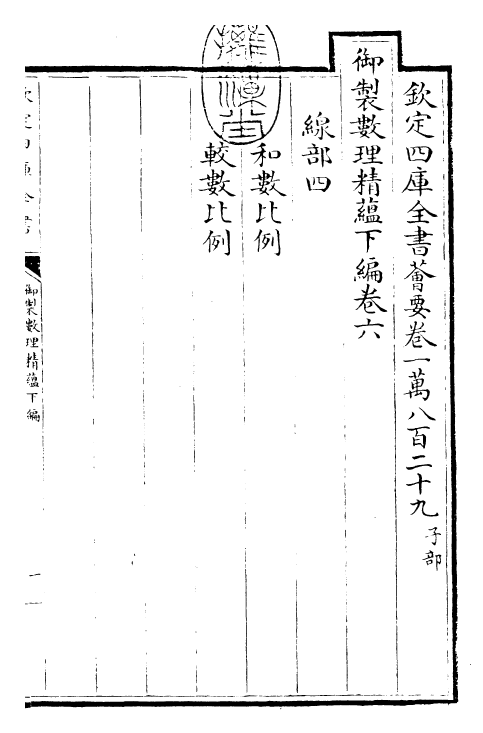 欽定四庫全書薈要卷一萬八百二十九 子部
御製數理精蘊下編卷六
線部四
和數比例
較數比例
欽定四庫全書
御製數理精蘊下編
一